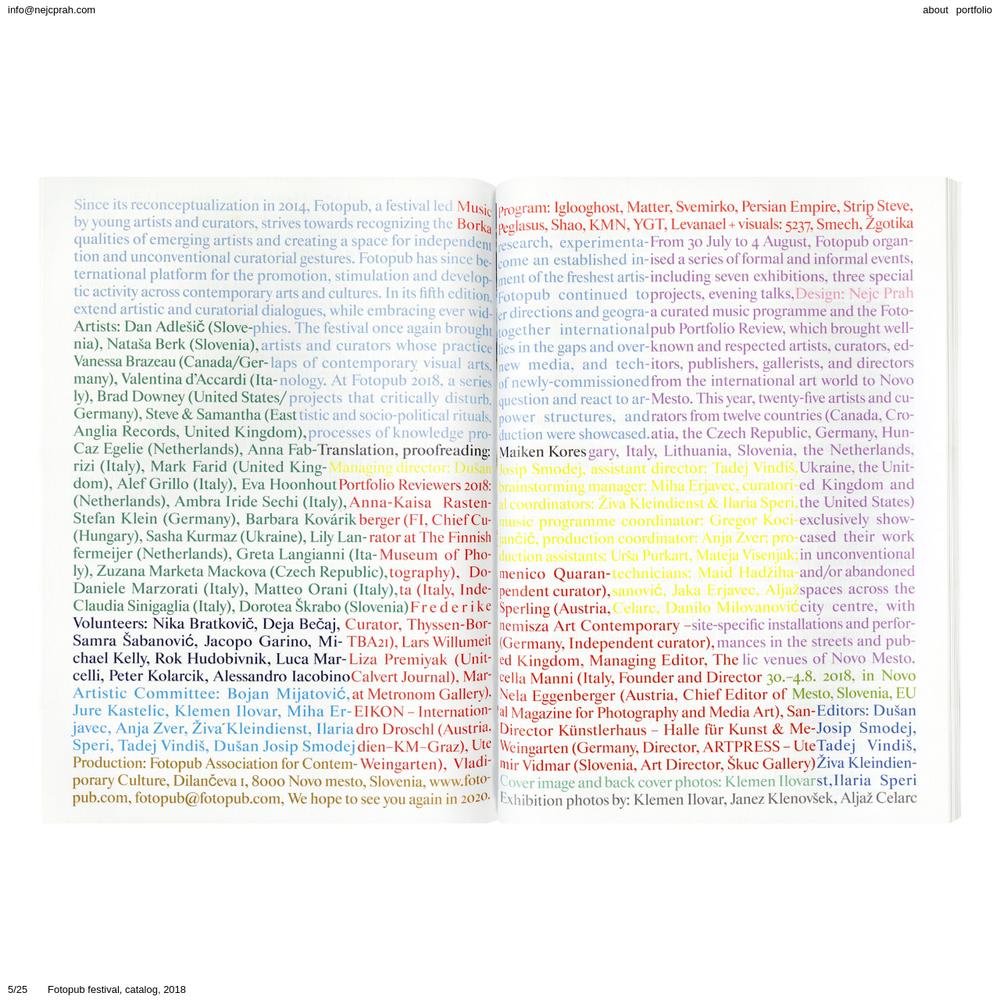 info@nejcprah.com
about portfolio
Since its reconceptualization in 2014, Fotopub, a festival led Music Program: Iglooghost, Matter, Svemirko, Persian Empire, Strip Steve,
by young artists and curators, strives towards recognizing the Borka Peglasus, Shao, KMN, YGT, Levanael + visuals: 5237, Smech, Žgotika
qualities of emerging artists and creating a space for independent research, experimenta- From 30 July to 4 August, Fotopub organ-
tion and unconventional curatorial gestures. Fotopub has since be- come an established in- ised a series of formal and informal events,
ternational platform for the promotion, stimulation and develop- ment of the freshest artis- including seven exhibitions, three special
tic activity across contemporary arts and cultures. In its fifth edition, Fotopub continued to projects, evening talks, Design: Nejc Prah
extend artistic and curatorial dialogues, while embracing ever wid- er directions and geogra- a curated music programme and the Foto-
Artists: Dan Adlešič (Slove- phies. The festival once again brought together international pub Portfolio Review, which brought well-
nia), Nataša Berk (Slovenia), artists and curators whose practice lies in the gaps and over- known and respected artists, curators, ed-
Vanessa Brazeau (Canada/Ger- laps of contemporary visual arts, new media, and tech- itors, publishers, gallerists, and directors
many), Valentina d'Accardi (Ita- nology. At Fotopub 2018, a series of newly-commissioned from the international art world to Novo
ly), Brad Downey (United States/ projects that critically disturb, question and react to ar- Mesto. This year, twenty-five artists and cu-
Germany), Steve & Samantha (East tistic and socio-political rituals, power structures, and rators from twelve countries (Canada, Cro-
Anglia Records, United Kingdom), processes of knowledge pro- duction were showcased. atia, the Czech Republic, Germany, Hun-
Caz Egelie (Netherlands), Anna Fab- Translation, proofreading: Maiken Kores gary, Italy, Lithuania, Slovenia, the Netherlands,
rizi (Italy), Mark Farid (United King- Managing director: Dušan Josip Smodej, assistant director: Tadej Vindiš, Ukraine, the Unit-
dom), Alef Grillo (Italy), Eva Hoonhout Portfolio Reviewers 2018: brainstorming manager: Miha Erjavec, curatori- ed Kingdom and
(Netherlands), Ambra Iride Sechi (Italy), Anna-Kaisa Rasten- al coordinators: Živa Kleindienst & Ilaria Speri, the United States)
Stefan Klein (Germany), Barbara Kovárik berger (FI, Chief Cu- music programme coordinator: Gregor Koci- exclusively show-
(Hungary), Sasha Kurmaz (Ukraine), Lily Lan- rator at The Finnish jančič, production coordinator: Anja Zver; pro- cased their work
fermeijer (Netherlands), Greta Langianni (Ita- Museum of Pho- duction assistants: Urša Purkart, Mateja Visenjak; in unconventional
ly), Zuzana Marketa Mackova (Czech Republic), tography), Do- menico Quaran- technicians: Maid Hadžiha- and/or abandoned
Daniele Marzorati (Italy), Matteo Orani (Italy), ta (Italy, Inde- pendent curator), sanović, Jaka Erjavec, Aljaž spaces across the
Claudia Sinigaglia (Italy), Dorotea Škrabo (Slovenia) Frederike Sperling (Austria, Celarc, Danilo Milovanović city centre, with
Volunteers: Nika Bratkovič, Deja Bečaj, Curator, Thyssen-Bor- nemisza Art Contemporary – site-specific installations and perfor-
Samra Šabanović, Jacopo Garino, Mi- TBA21), Lars Willumeit (Germany, Independent curator), mances in the streets and pub-
chael Kelly, Rok Hudobivnik, Luca Mar- Liza Premiyak (Unit- ed Kingdom, Managing Editor, The lic venues of Novo Mesto.
celli, Peter Kolarcik, Alessandro Iacobino Calvert Journal), Mar- cella Manni (Italy, Founder and Director 30.–4.8. 2018, in Novo
Artistic Committee: Bojan Mijatović, at Metronom Gallery). Nela Eggenberger (Austria, Chief Editor of Mesto, Slovenia, EU
Jure Kastelic, Klemen Ilovar, Miha Er- EIKON – Internation- al Magazine for Photography and Media Art), San- Editors: Dušan
javec, Anja Zver, Živa Kleindienst, Ilaria dro Droschl (Austria, Director Künstlerhaus – Halle für Kunst & Me- Josip Smodej,
Speri, Tadej Vindiš, Dušan Josip Smodej dien–KM–Graz), Ute Weingarten (Germany, Director, ARTPRESS – Ute Tadej Vindiš,
Production: Fotopub Association for Contem- Weingarten), Vladi- mir Vidmar (Slovenia, Art Director, Škuc Gallery) Živa Kleindien-
porary Culture, Dilančeva 1, 8000 Novo mesto, Slovenia, www.foto- Cover image and back cover photos: Klemen Ilovar st, Ilaria Speri
pub.com, fotopub@fotopub.com, We hope to see you again in 2020. Exhibition photos by: Klemen Ilovar, Janez Klenovšek, Aljaž Celarc
5/25 Fotopub festival, catalog, 2018